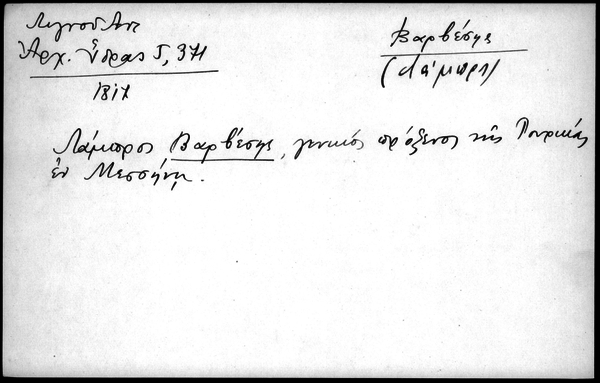 Λιγνοῦ Ἀντ
Ἀρχ. Ὕδρας 5, 371
1817
Βαρβέσης
(Λάμπρος)
Λάμπρος Βαρβέσης, γενικός πρόξενος τῆς Τουρκίας
ἐν Μεσσήνῃ.